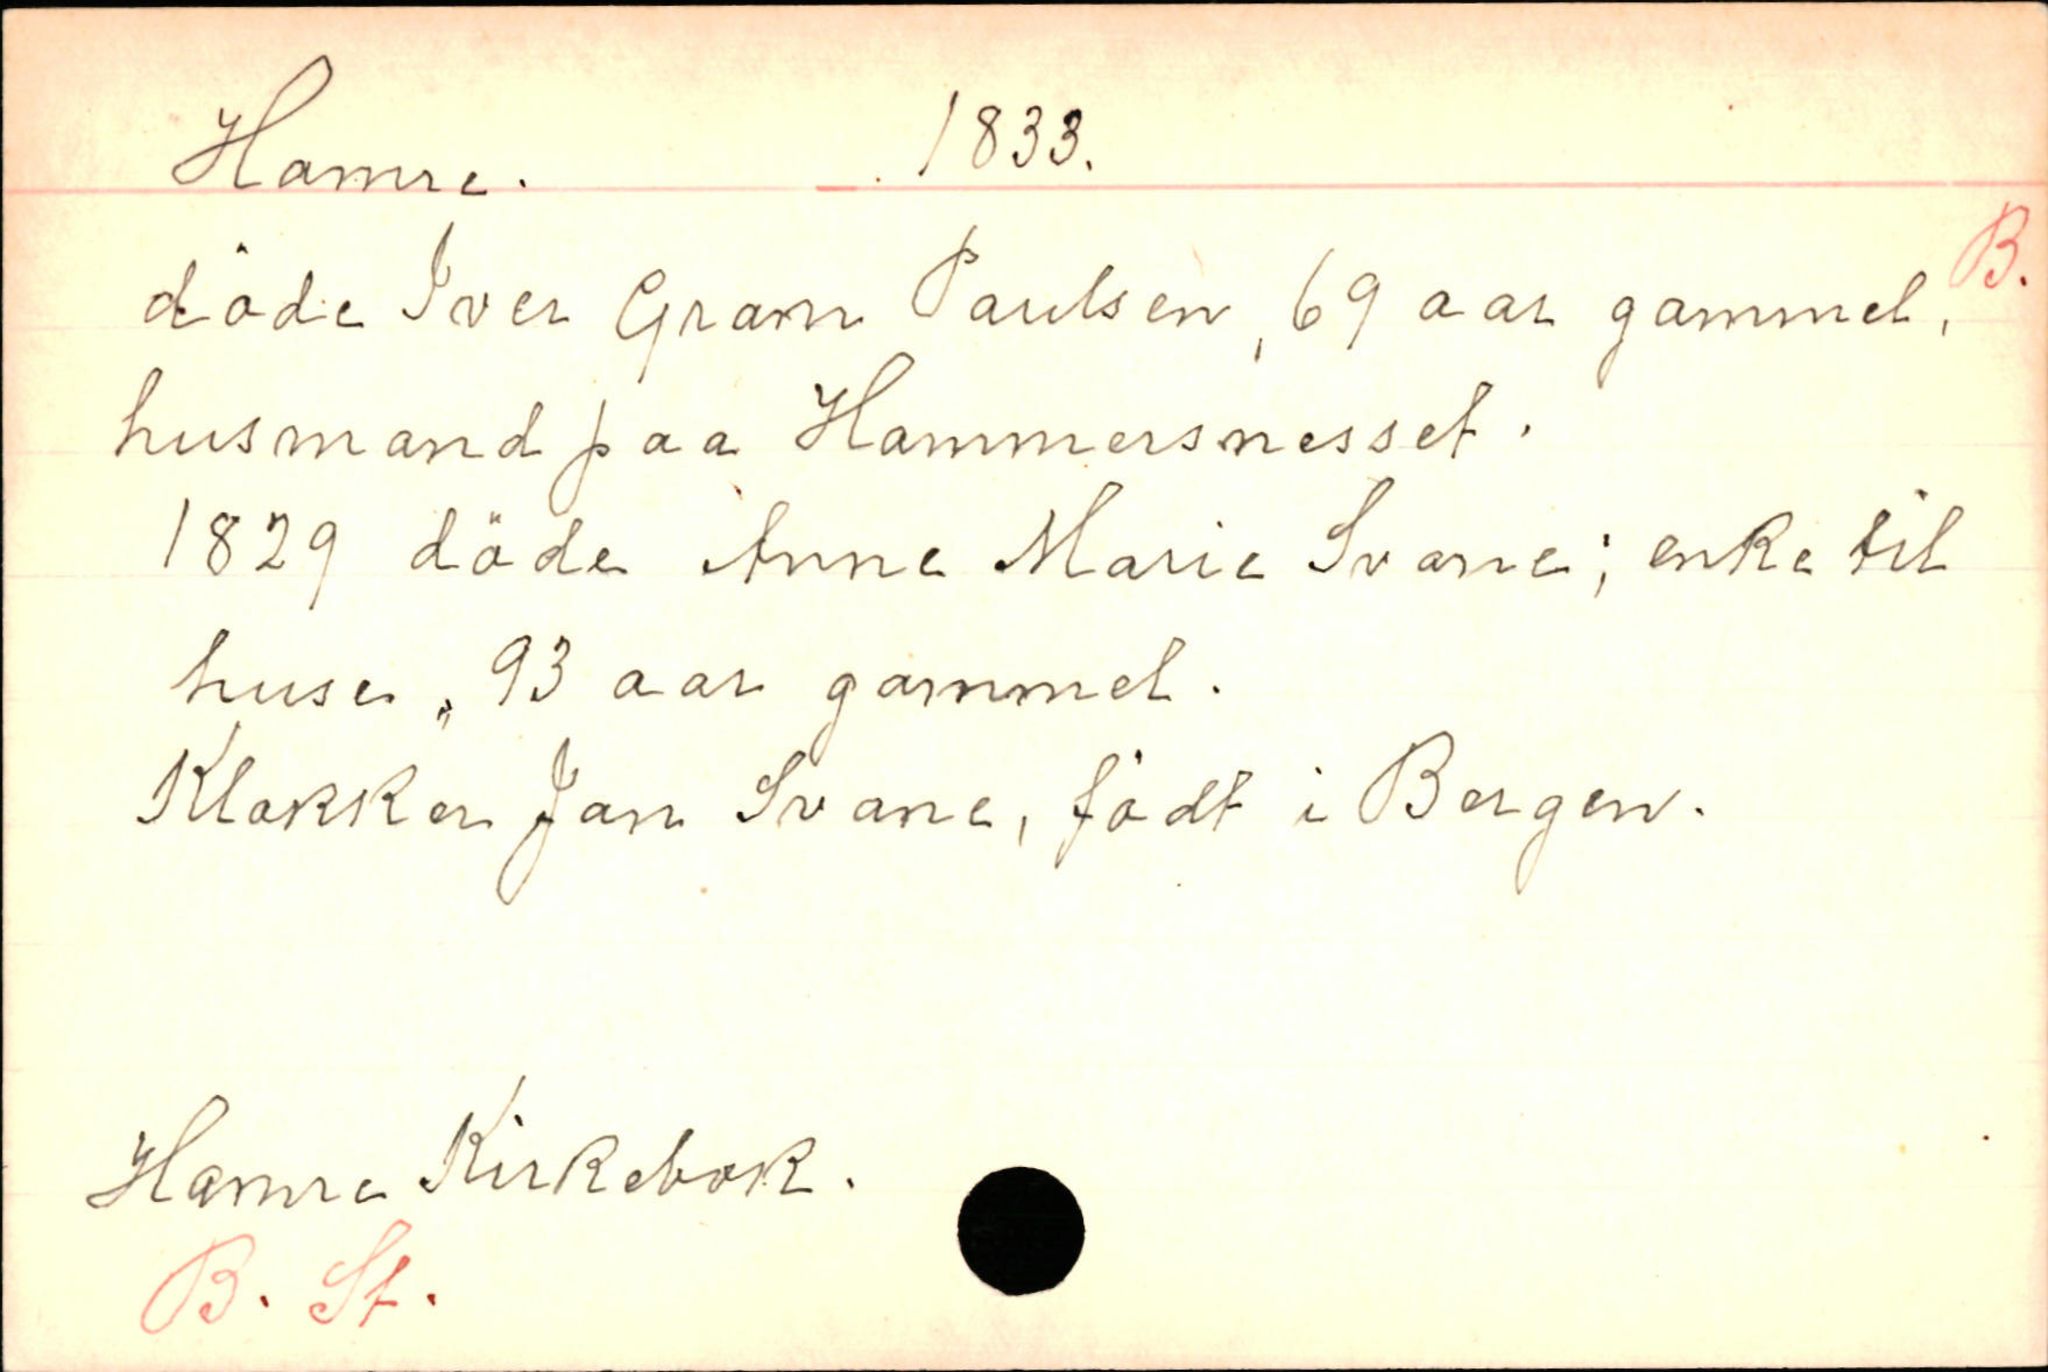 Hamre. 1833.
B.
döde Iver Gram Paulsen, 69 aar gammel,
husmand paa Hammersnesset.
1829 döde Anne Marie Svane; enke til
huse, 93 aar gammel.
Klokker Jan Svane, födt i Bergen.
Hamre Kirkebok.
B. St.